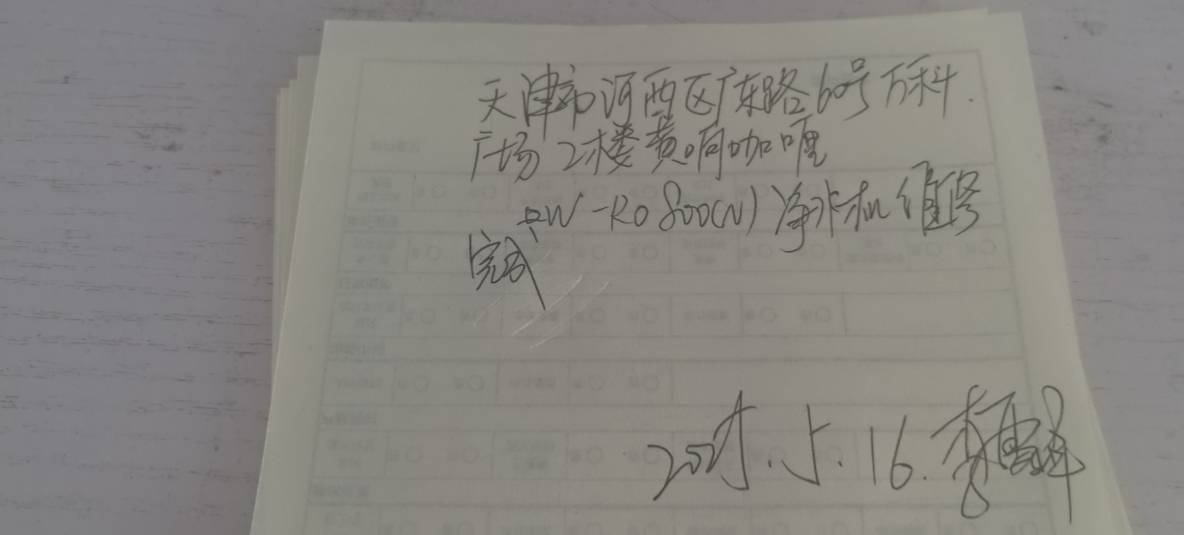 天津市河西区广东路60号万科
广场2楼黄响咖喱
RW-RO800(N)净水机维修
完成
2025.5.16.李